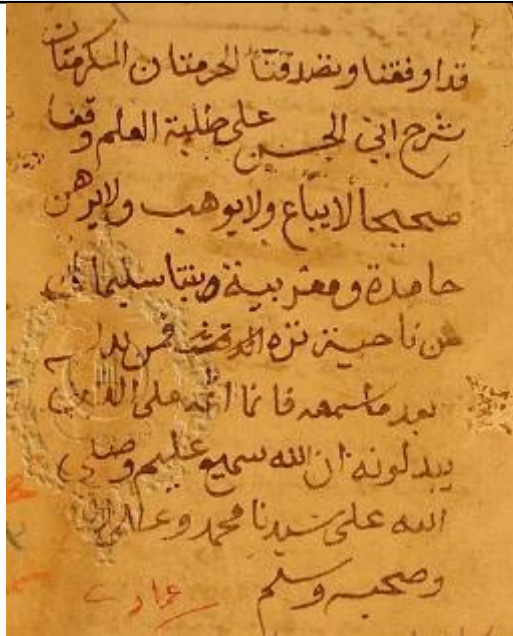 قد اوقفنا وتصدقنا الحرمتان المكرمتان
شرح ابي الحسن على طلبة العلم وقفا
صحيحا لا يباع ولا يوهب ولا يرهن
حامدة ومغربية بنتا سليمان
من ناحية فمن بدله
بعد ما سمعه فانما اثمه على الذين
يبدلونه ان الله سميع عليم وصلى
الله على سيدنا محمد وعلى اله
وصحبه وسلم